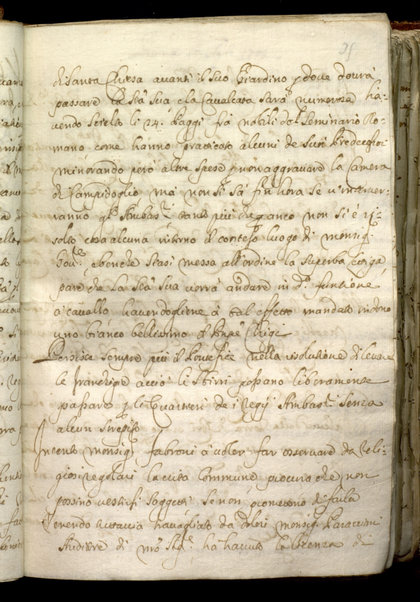 di santa Chiesa avanti il suo Giardino p dove dovrà
passare la Stà Sua e la Cavalcata sarà numerosa ha-
vendo scielto li 24. Paggi frà nobili del Seminario Ro-
mano come hanno praticato alcuni de suoi Predecessori
minorando però altre spese p non aggravare la Camera
di Campidoglio ma non si sà fin hora se v'interver-
ranno gl' Ambasri tanto più che anco non si è ri-
solto cosa alcuna intorno il conteso luogo di monsig.
Govre, ebenche stasi messa all'ordine la superba
pare che la Stà Sua vorrà andare in da funtione
à cavallo havendogliene à tal effetto mandato in dono
uno bianco bellissimo
Persiste sempre più il Pontefice nella risolutione di levare
le franchigie acciò li sbirri possano liberamente
passare p li Quartieri de i Regij Ambasri senza
alcun
Intento monsig. Fabroni à voler far osservare da Reli-
giosi regolari la vita commune procura che non
possino vestirsi soggetti se non
Tenendo tuttavia travagliato da dolori monsig.
Auditre di Sigre hà havuto la licenza di